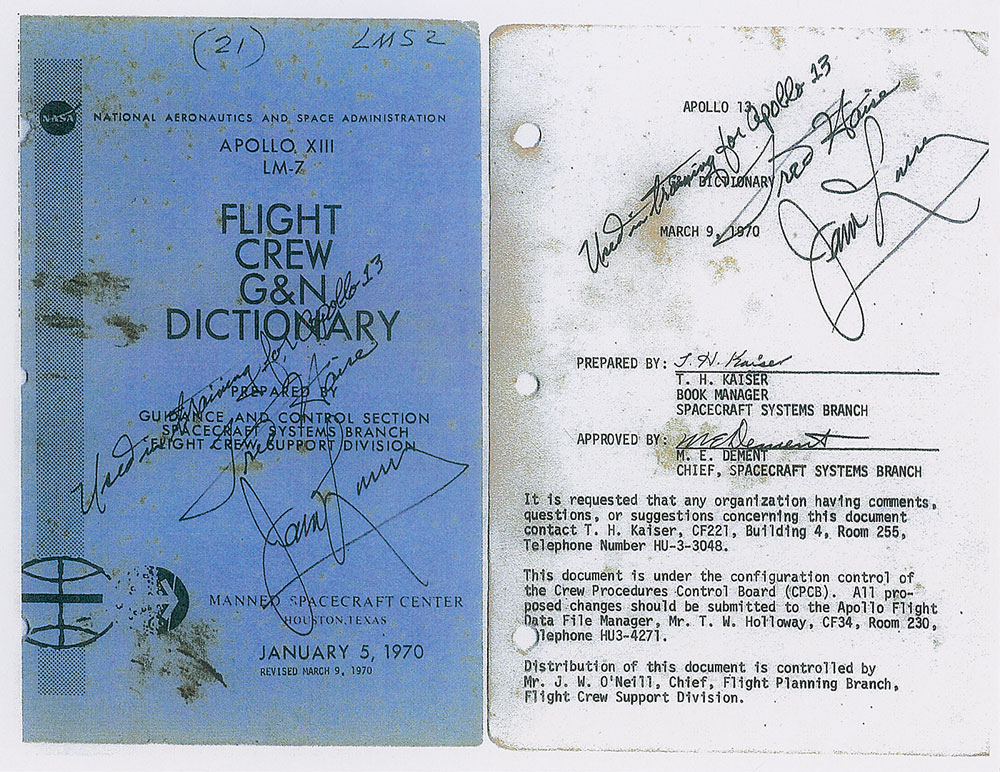 (21)
LMS2
NASA
NATIONAL AERONAUTICS AND SPACE ADMINISTRATION
APOLLO XIII
LM-7
FLIGHT
CREW
G&N
DICTIONARY
Used in training for Apollo 13
Fred Haise
Jam Lovell
PREPARED BY
GUIDANCE AND CONTROL SECTION
SPACECRAFT SYSTEMS BRANCH
FLIGHT CREW SUPPORT DIVISION
MANNED SPACECRAFT CENTER
HOUSTON, TEXAS
JANUARY 5, 1970
REVISED MARCH 9, 1970
APOLLO 13
G&N DICTIONARY
MARCH 9, 1970
Used in training for Apollo 13
Fred Haise
Jam Lovell
PREPARED BY: T. H. Kaiser
T. H. KAISER
BOOK MANAGER
SPACECRAFT SYSTEMS BRANCH
APPROVED BY: M E Dement
M. E. DEMENT
CHIEF, SPACECRAFT SYSTEMS BRANCH
It is requested that any organization having comments,
questions, or suggestions concerning this document
contact T. H. Kaiser, CF221, Building 4, Room 255,
Telephone Number HU-3-3048.
This document is under the configuration control of
the Crew Procedures Control Board (CPCB). All pro-
posed changes should be submitted to the Apollo Flight
Data File Manager, Mr. T. W. Holloway, CF34, Room 230,
Telephone HU3-4271.
Distribution of this document is controlled by
Mr. J. W. O'Neill, Chief, Flight Planning Branch,
Flight Crew Support Division.